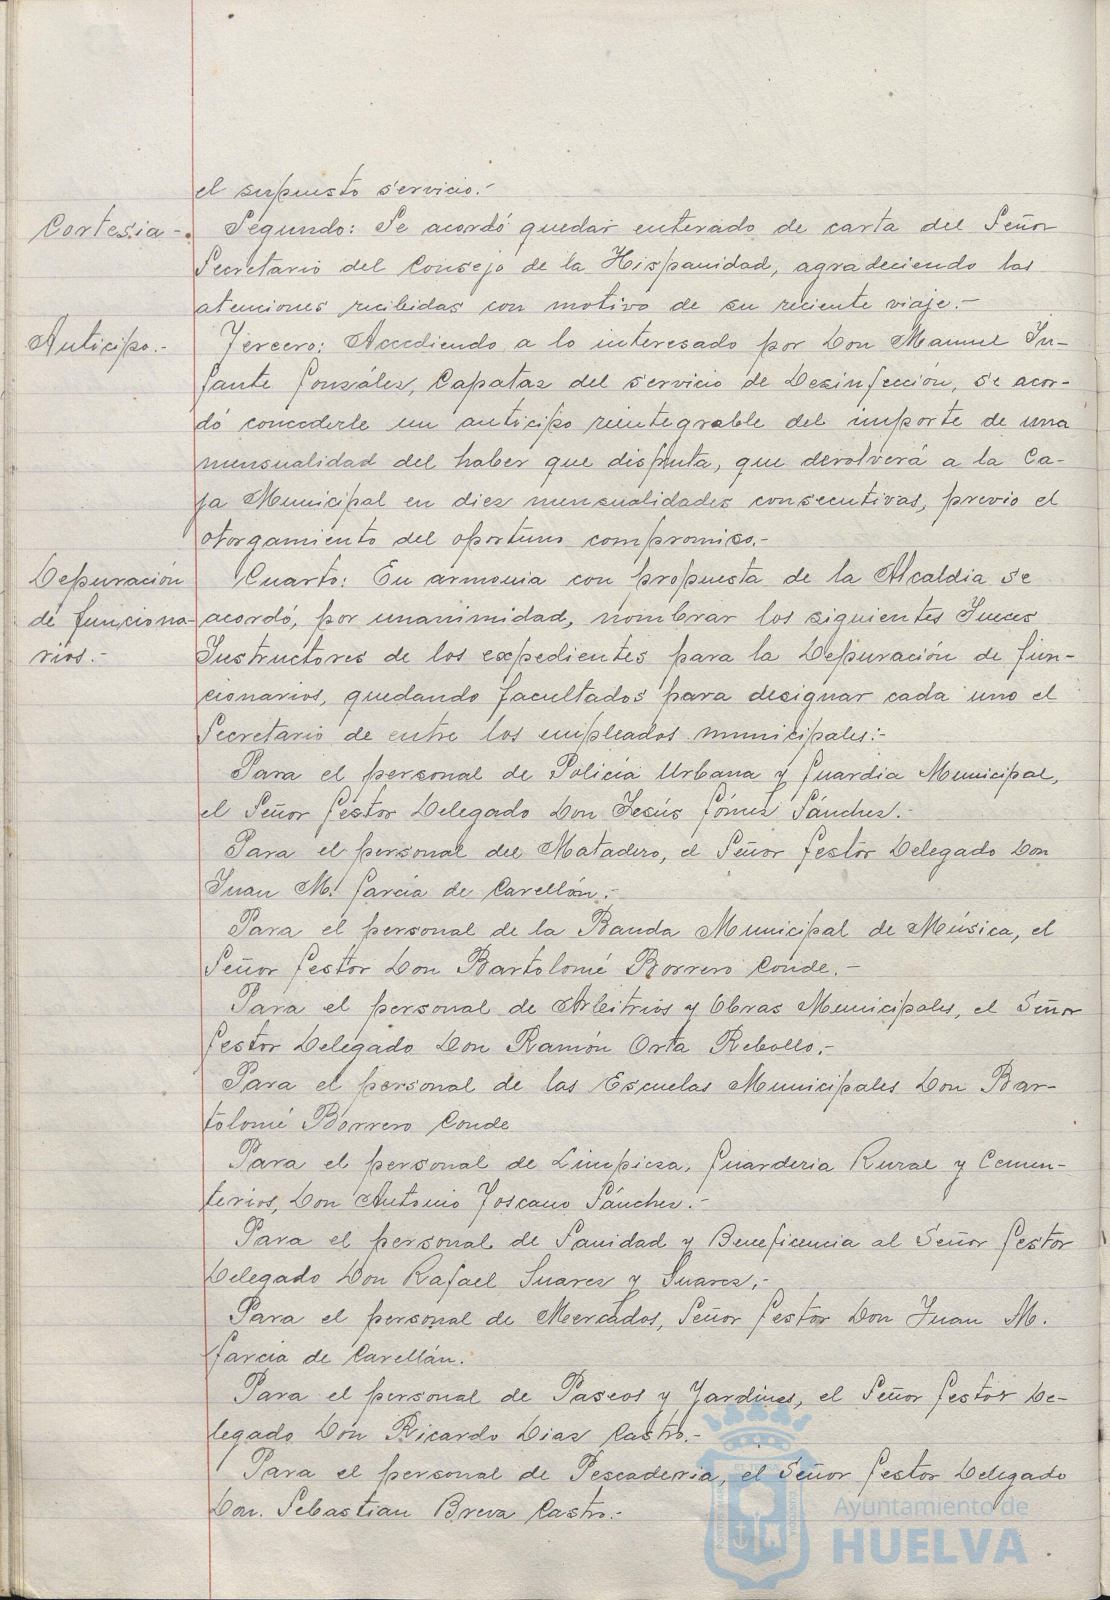 el supuesto servicio.-
Cortesia-.
Segundo: Se acordó quedar enterado de carta del Señor
Secretario del Consejo de la Hispanidad, agradeciendo las
atenciones recibidas con motivo de su reciente viaje.-
Anticipo.-
Tercero: Accediendo a lo interesado por Don Manuel In-
fante González, Capataz del servicio de Desinfección, se acor-
dó concederle un anticipo reintegrable del importe de una
mensualidad del haber que disfruta, que devolverá a la Ca-
ja Municipal en diez mensualidades consecutivas, previo el
otorgamiento del oportuno compromiso.-
Depuración
de funciona-
rios.-
Cuarto: En armonia con propuesta de la Alcaldia se
acordó, por unanimidad, nombrar los siguientes Jueces
Instructores de los expedientes para la Depuración de fun-
cionarios, quedando facultados para designar cada uno el
Secretario de entre los empleados municipales:-
Para el personal de Policía Urbana y Guardia Municipal,
el Señor Gestor Delegado Don Jesús Gómez Sánchez.-
Para el personal del Matadero, el Señor Gestor Delegado Don
Juan M. García de Carellán.-
Para el personal de la Banda Municipal de Música, el
Señor Gestor Don Bartolomé Borrero Conde.-
Para el personal de Arbitrios y Obras Municipales, el Señor
Gestor Delegado Don Ramón Orta Rebollo.-
Para el personal de las Escuelas Municipales Don Bar-
tolomé Borrero Conde
Para el personal de Limpieza, Guarderia Rural y Cemen-
terios, Don Antonio Toscano Sánchez.-
Para el personal de Sanidad y Beneficencia al Señor Gestor
Delegado Don Rafael Suarez y Suarez.-
Para el personal de Mercados, Señor Gestor Don Juan M.
García de Carellán.
Para el personal de Paseos y Jardines, el Señor Gestor De-
legado Don Ricardo Diaz Castro.-
Para el personal de Pescaderia, el Señor Gestor Delegado
Don. Sebastian Breva Castro.-
Ayuntamiento de
HUELVA